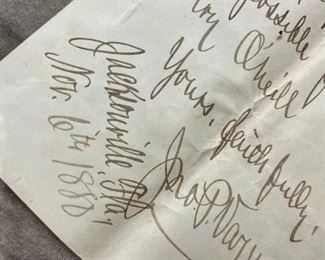 possible
O'Neill
Yours,
Jno. P. Varn
Jacksonville, Fla,
Nov. 6th, 1880